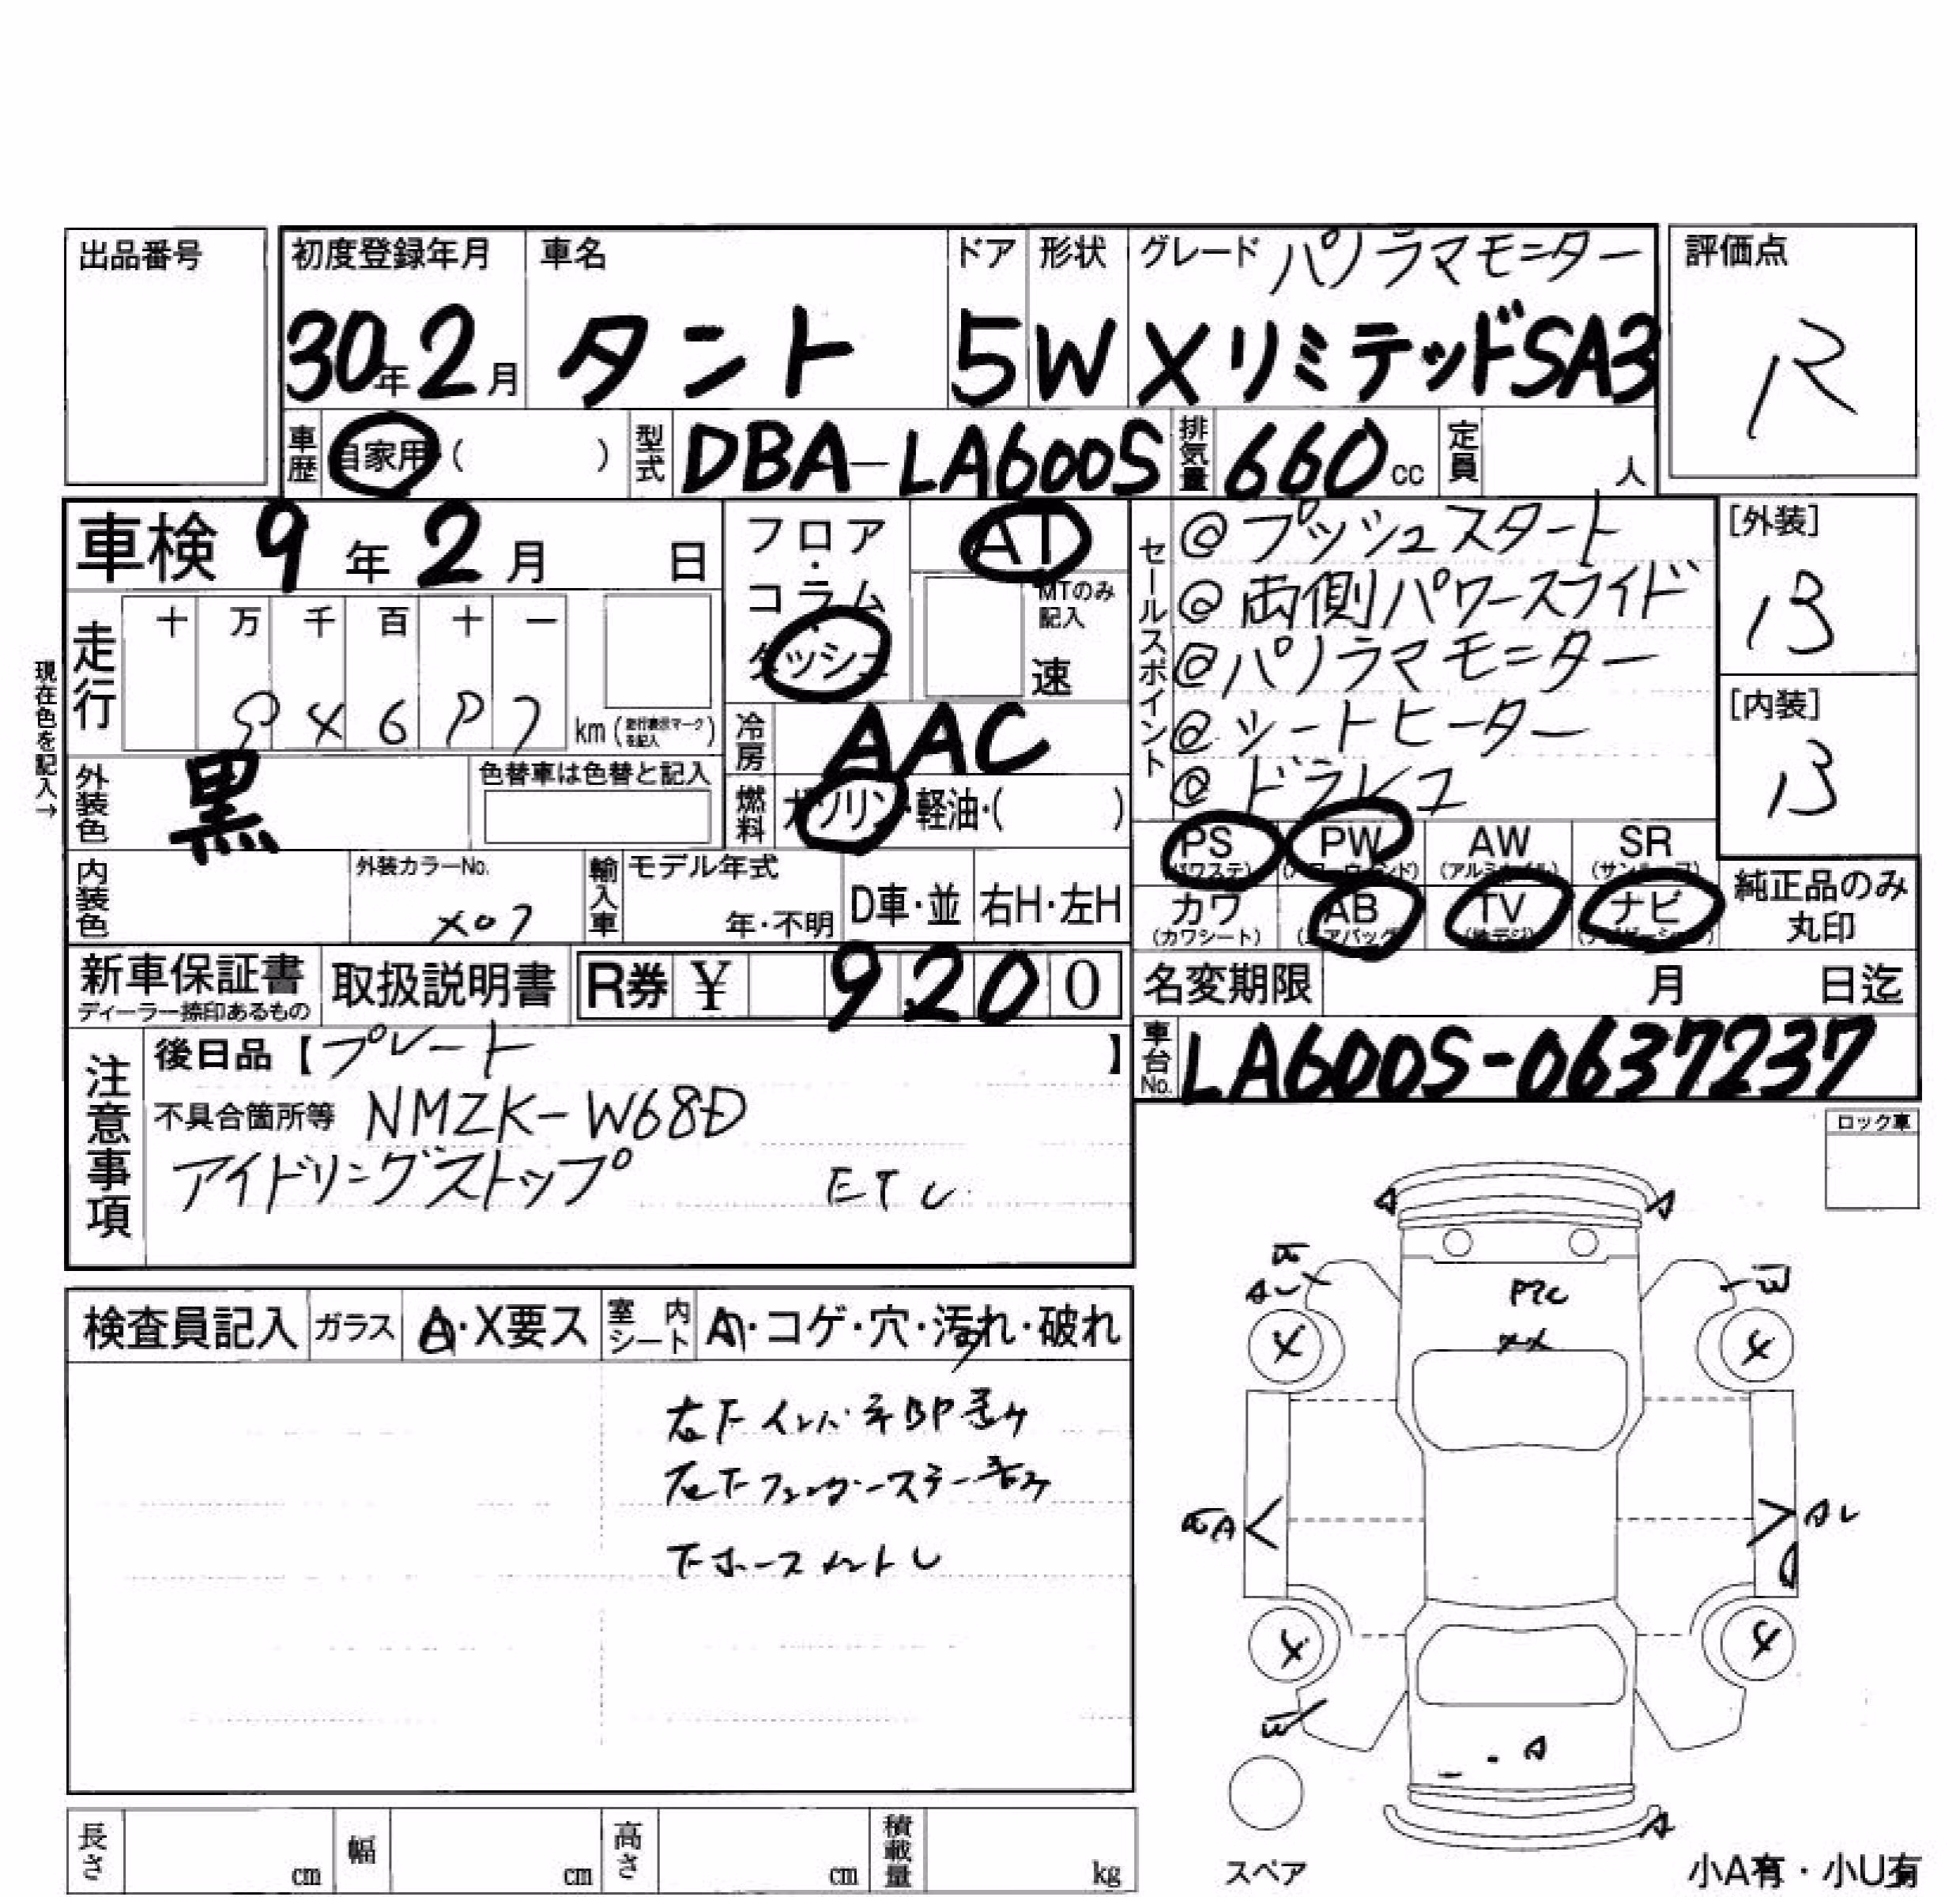 出品番号
初度登録年月 車名 ドア 形状 グレード パノラマモニター 評価点
30年2月 タント 5 W XリミテッドSA3 R
車歴 自家用 ( ) 型式 DBA-LA600S 排気量 660cc 定員 人
車検 9年2月 日
フロア・コラム ダッシュ AT
MTのみ記入
速
セールスポイント
@プッシュスタート
@両側パワースライド
@パノラマモニター
@シートヒーター
@ドラレコ
[外装]
B
[内装]
B
現在色を記入→
走行 十 万 千 百 十 一
km (走行表示マークを記入)
冷房 AAC
外装色 黒 色替車は色替と記入
燃料 ガソリン・軽油・( )
PS (パワステ) PW (パワーウィンド) AW (アルミホイル) SR (サンルーフ)
カワ (カワシート) AB (エアバッグ) TV (地デジ) ナビ (ナビゲーション)
純正品のみ丸印
内装色 外装カラーNo. X07 輸入車 モデル年式 年・不明 D車・並 右H・左H
新車保証書 ディーラー捺印あるもの 取扱説明書 R券 ¥ 9200
名変期限 月 日迄
車台No. LA600S-0637237
注意事項
後日品【プレート 】
不具合箇所等 NMZK-W68D
アイドリングストップ ETC
ロック車
検査員記入 ガラス A・X要ス 室内シート A・コゲ・穴・汚れ・破れ
A A
W
AU W
X X
A
AU
X X
W
A
A
長さ cm 幅 cm 高さ cm 積載量 kg
スペア
小A有・小U有